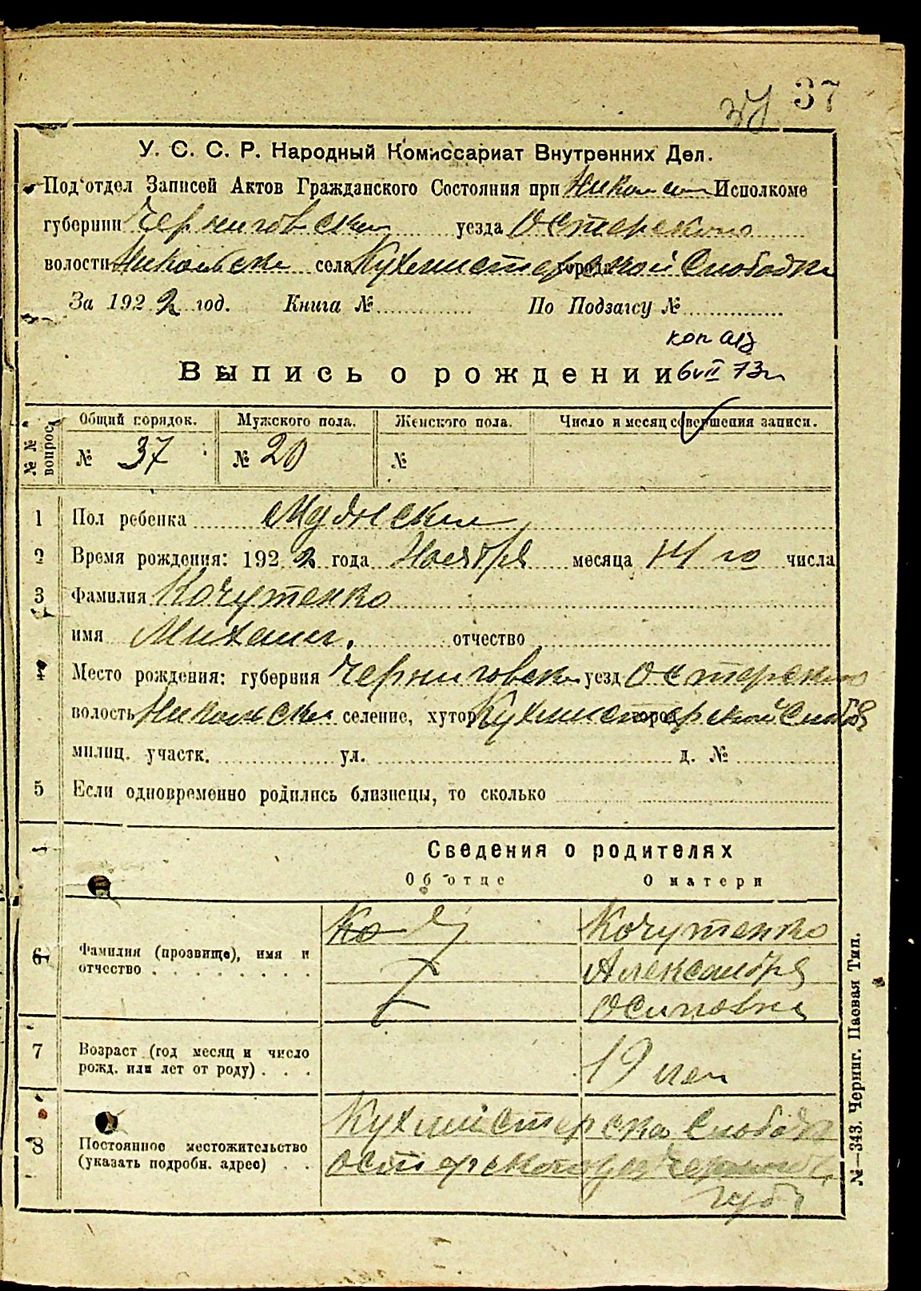 37
У. С. С. Р. Народный Комиссариат Внутренних Дел.
Подотдел Записей Актов Гражданского Состояния при Исполкоме
губернии Черниговской уезда Остерского
волости Никольской села Кухмистерской Слободки
За 1922 год. Книга № По Подзагсу №
6 VII 73г
Выпись о рождении
№№ вопрос.
Общий порядок. Мужского пола. Женского пола. Число и месяц совершения записи.
№ 37 № 20 №
1 Пол ребенка Мужский
2 Время рождения: 1922 года Ноября месяца 14 го числа
3 Фамилия Кочутенко
имя Михаил. отчество
4 Место рождения: губерния Черниговск уезд Остерского
волость Никольской селение, хутор Кухмистерской Слобод
милиц. участк. ул. д. №
5 Если одновременно родились близнецы, то сколько
Сведения о родителях
Об отце О матери
6 Фамилия (прозвище), имя и отчество Кочутенко
Александра
Осиповна
7 Возраст (год месяц и число рожд. или лет от роду) 19 лет
8 Постоянное местожительство (указать подробн. адрес) Кухмистерска Слободк
Остерского уез Чернигов
губ
№—343. Черниг. Паевая Тип.